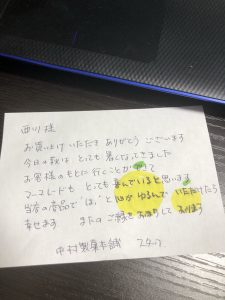 西川 様
お買い上げ いただき ありがとう ございます
今日の秋は とっても 暑くなってきました
お客様のもとに行くことができて
マーマレードも とっても 喜んでいると思います
当店の商品で "ほっ"と 心がゆるんで いただけたら
幸せます またのご縁をお待ちして おります
中村製菓本舗